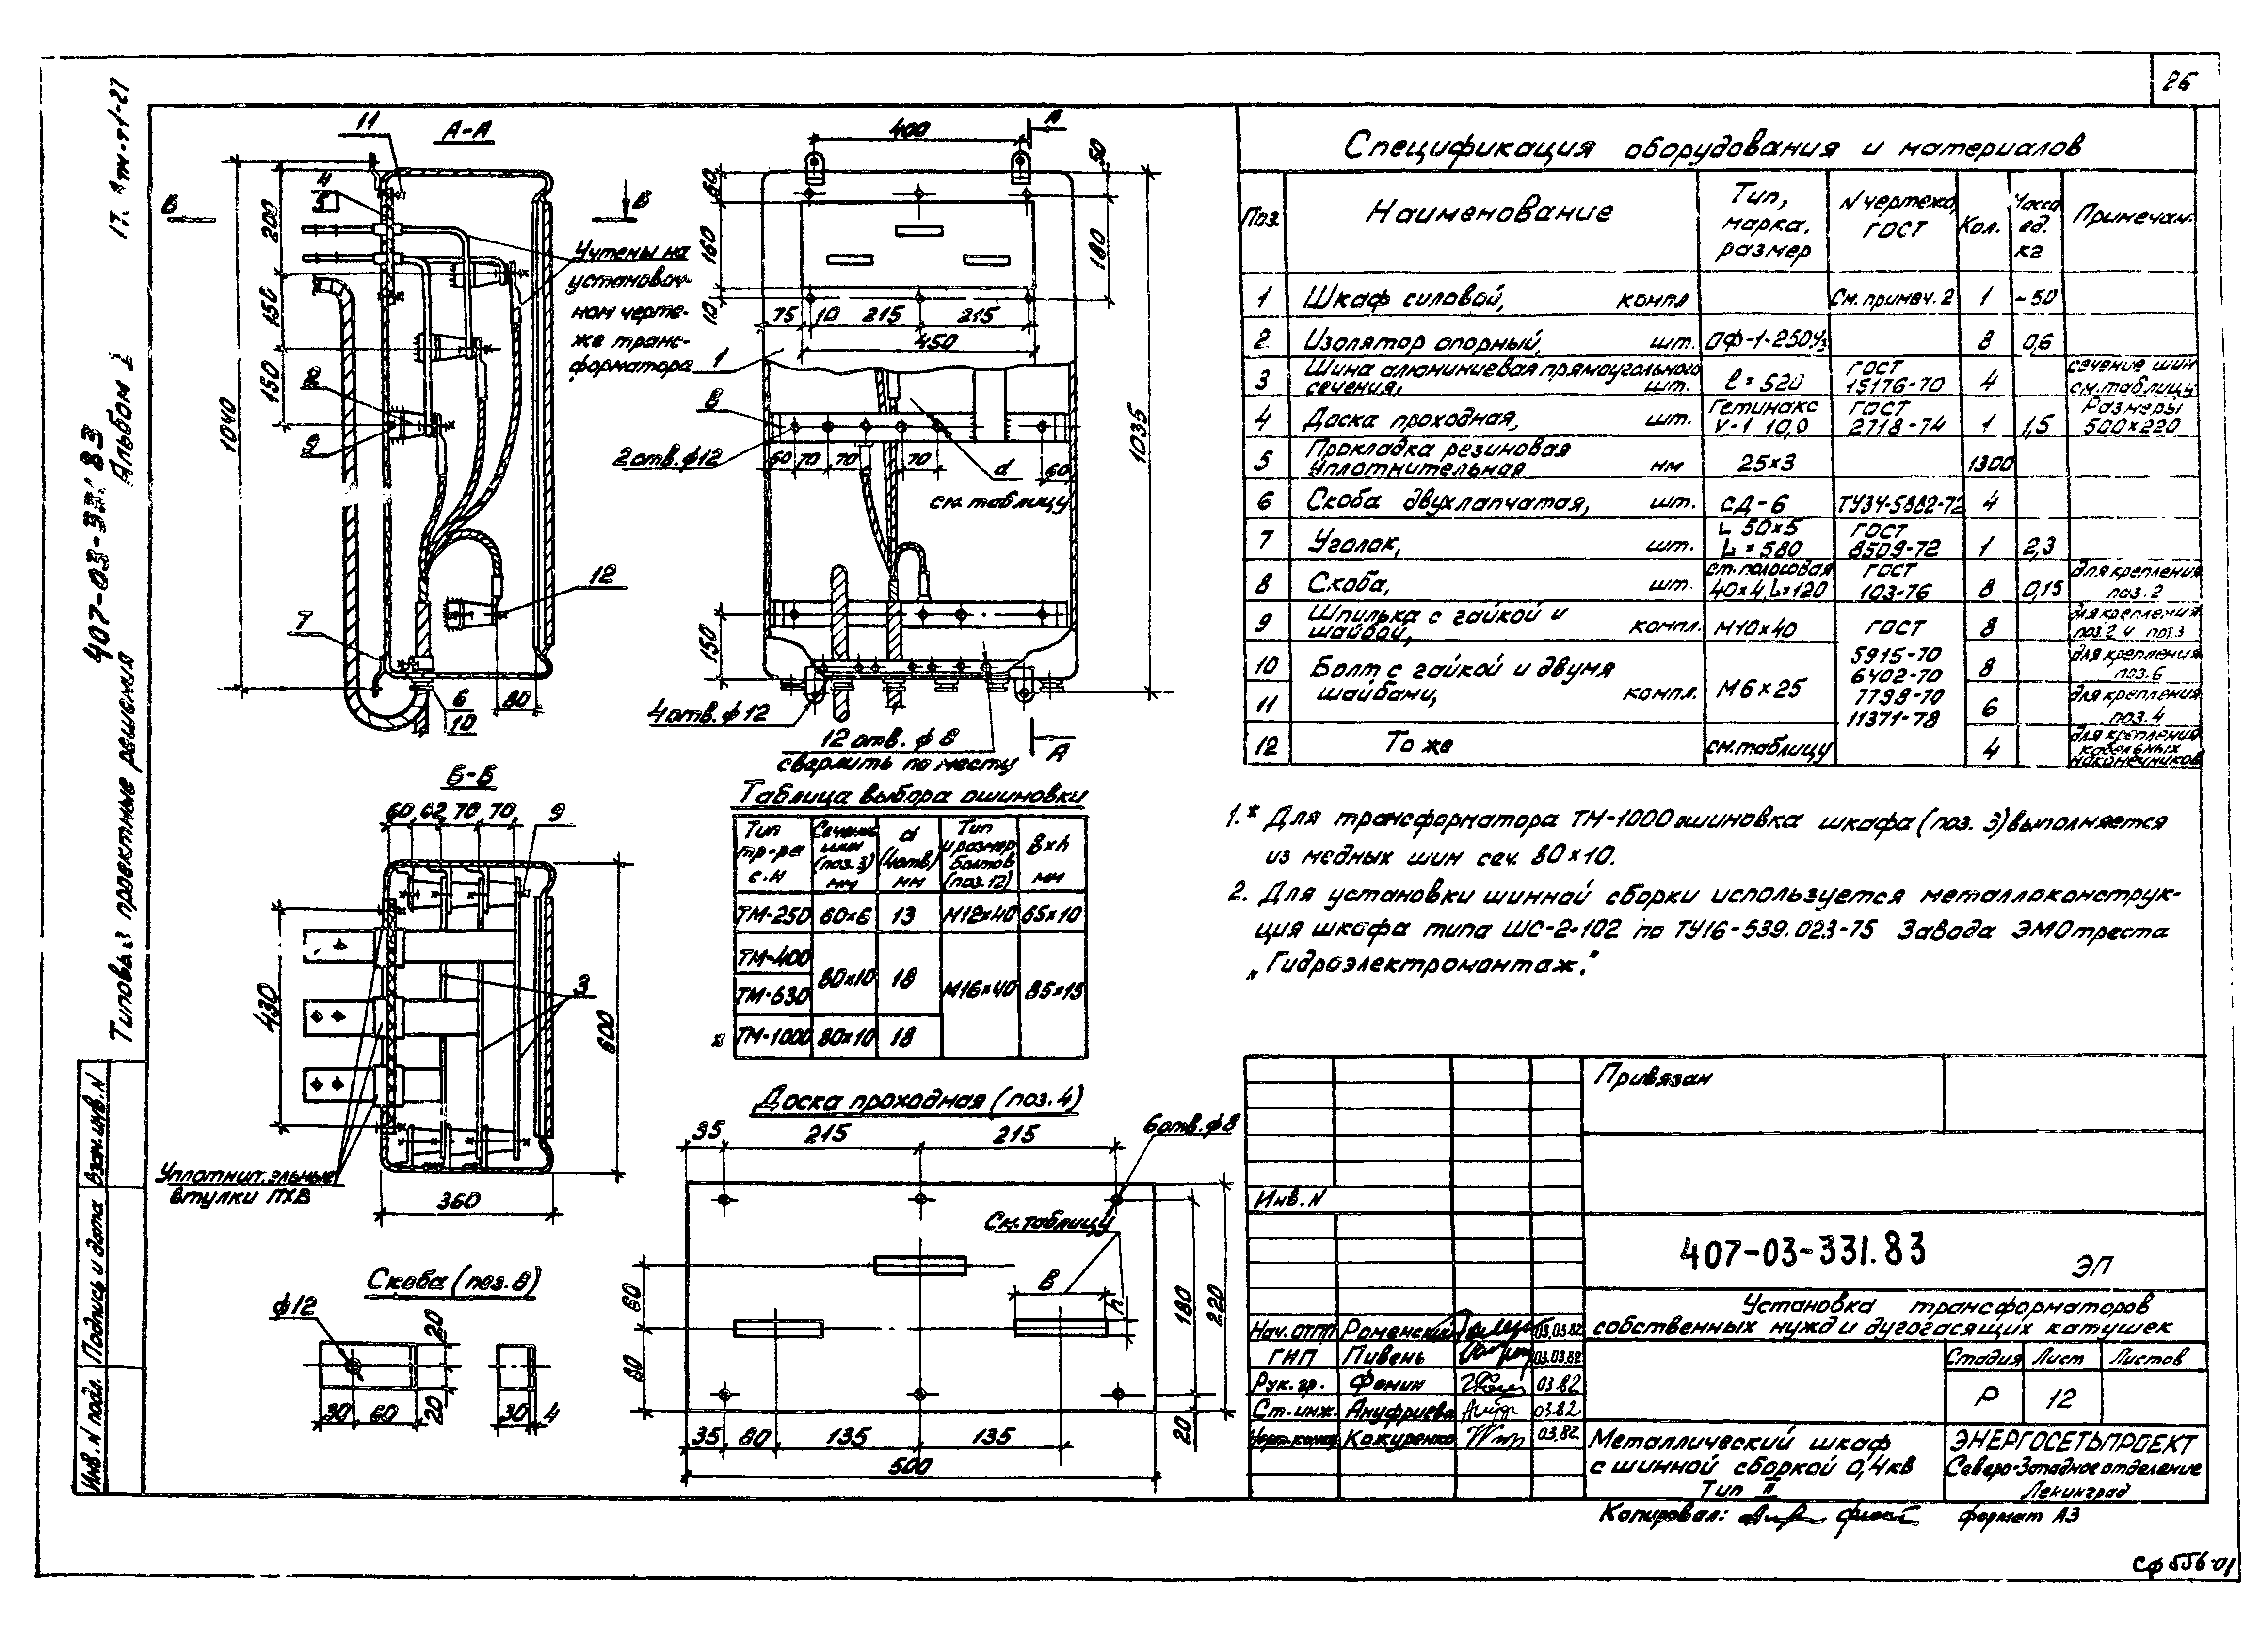 26
407-03-331.83
Альбом I
Типовые проектные решения
А-А
11
4
5
200
150
150
1040
В
В
Учтены на
установоч-
ном черте-
же транс-
форматора
2
9
7
12
6
10
80
400
А
50
60
160
180
10
75
10
215
215
450
1
8
2 отв. ф12
60
70
70
70
d
60
см. таблицу
1035
150
4 отв. ф12
12 отв. ф8
сверлить по месту
А
Б-Б
60
62
70
70
9
430
3
600
Уплотнительные
втулки ПХВ
360
Скоба (поз. 8)
ф12
20
20
30
60
30
4
Таблица выбора ошиновки
Тип тр-ра с.н | Сечение шин (поз.3) мм | d (4отв) мм | Тип и размер болтов (поз.12) | в×h мм
ТМ-250 | 60×6 | 13 | М12×40 | 65×10
ТМ-400
ТМ-630 | 80×10 | 18 | М16×40 | 85×15
* ТМ-1000 | 80×10 | 18
Доска проходная (поз. 4)
35
215
215
6 отв. ф8
См. таблицу
в
h
60
80
180
220
20
35
80
135
135
500
Спецификация оборудования и материалов
Поз. | Наименование | Тип, марка, размер | N чертежа, ГОСТ | Кол. | Масса ед. кг | Примечан.
1 | Шкаф силовой, компл | См. примеч. 2 | 1 | ~50
2 | Изолятор опорный, шт. | ОФ-1-250У3 | 8 | 0,6
3 | Шина алюминиевая прямоугольного сечения, шт. | ℓ = 520 | ГОСТ 15176-70 | 4 | сечение шин см. таблицу
4 | Доска проходная, шт. | Гетинакс V-1 10,0 | ГОСТ 2718-74 | 1 | 1,5 | Размеры 500×220
5 | Прокладка резиновая уплотнительная мм | 25×3 | 1300
6 | Скоба двухлапчатая, шт. | СД-6 | ТУ34-5882-72 | 4
7 | Уголок, шт. | L 50×5 L = 580 | ГОСТ 8509-72 | 1 | 2,3
8 | Скоба, шт. | ст. полосовая 40×4, L=120 | ГОСТ 103-76 | 8 | 0,15 | для крепления поз. 2
9 | Шпилька с гайкой и шайбой, компл. | М10×40 | ГОСТ | 8 | для крепления поз. 2 и поз. 3
10 | Болт с гайкой и двумя | 5915-70 6402-70 | 8 | для крепления поз. 6
11 | шайбами, компл. | М6×25 | 7798-70 11371-78 | 6 | для крепления поз. 4
12 | То же | см. таблицу | 4 | для крепления кабельных наконечников
1.* Для трансформатора ТМ-1000 ошиновка шкафа (поз. 3) выполняется
из медных шин сеч. 80×10.
2. Для установки шинной сборки используется металлоконструк-
ция шкафа типа ШС-2-102 по ТУ16-539.023-75 Завода ЭМО треста
„Гидроэлектромонтаж."
Привязан
Инв. N
407-03-331.83
ЭП
Установка трансформаторов
собственных нужд и дугогасящих катушек
Нач. ОТПП Роменский 03.03.82
ГИП Пивень 03.03.82
Рук. гр. Фомин 03.82
Ст. инж. Ануфриева 03.82
Норм. контр. Кожуренко 03.82
Стадия Лист Листов
Р 12
Металлический шкаф
с шинной сборкой 0,4кв
Тип II
ЭНЕРГОСЕТЬПРОЕКТ
Северо-Западное отделение
Ленинград
Копировал:
формат А3
сф 556-01
Инв. N подл.
Подпись и дата
Взам. инв. N